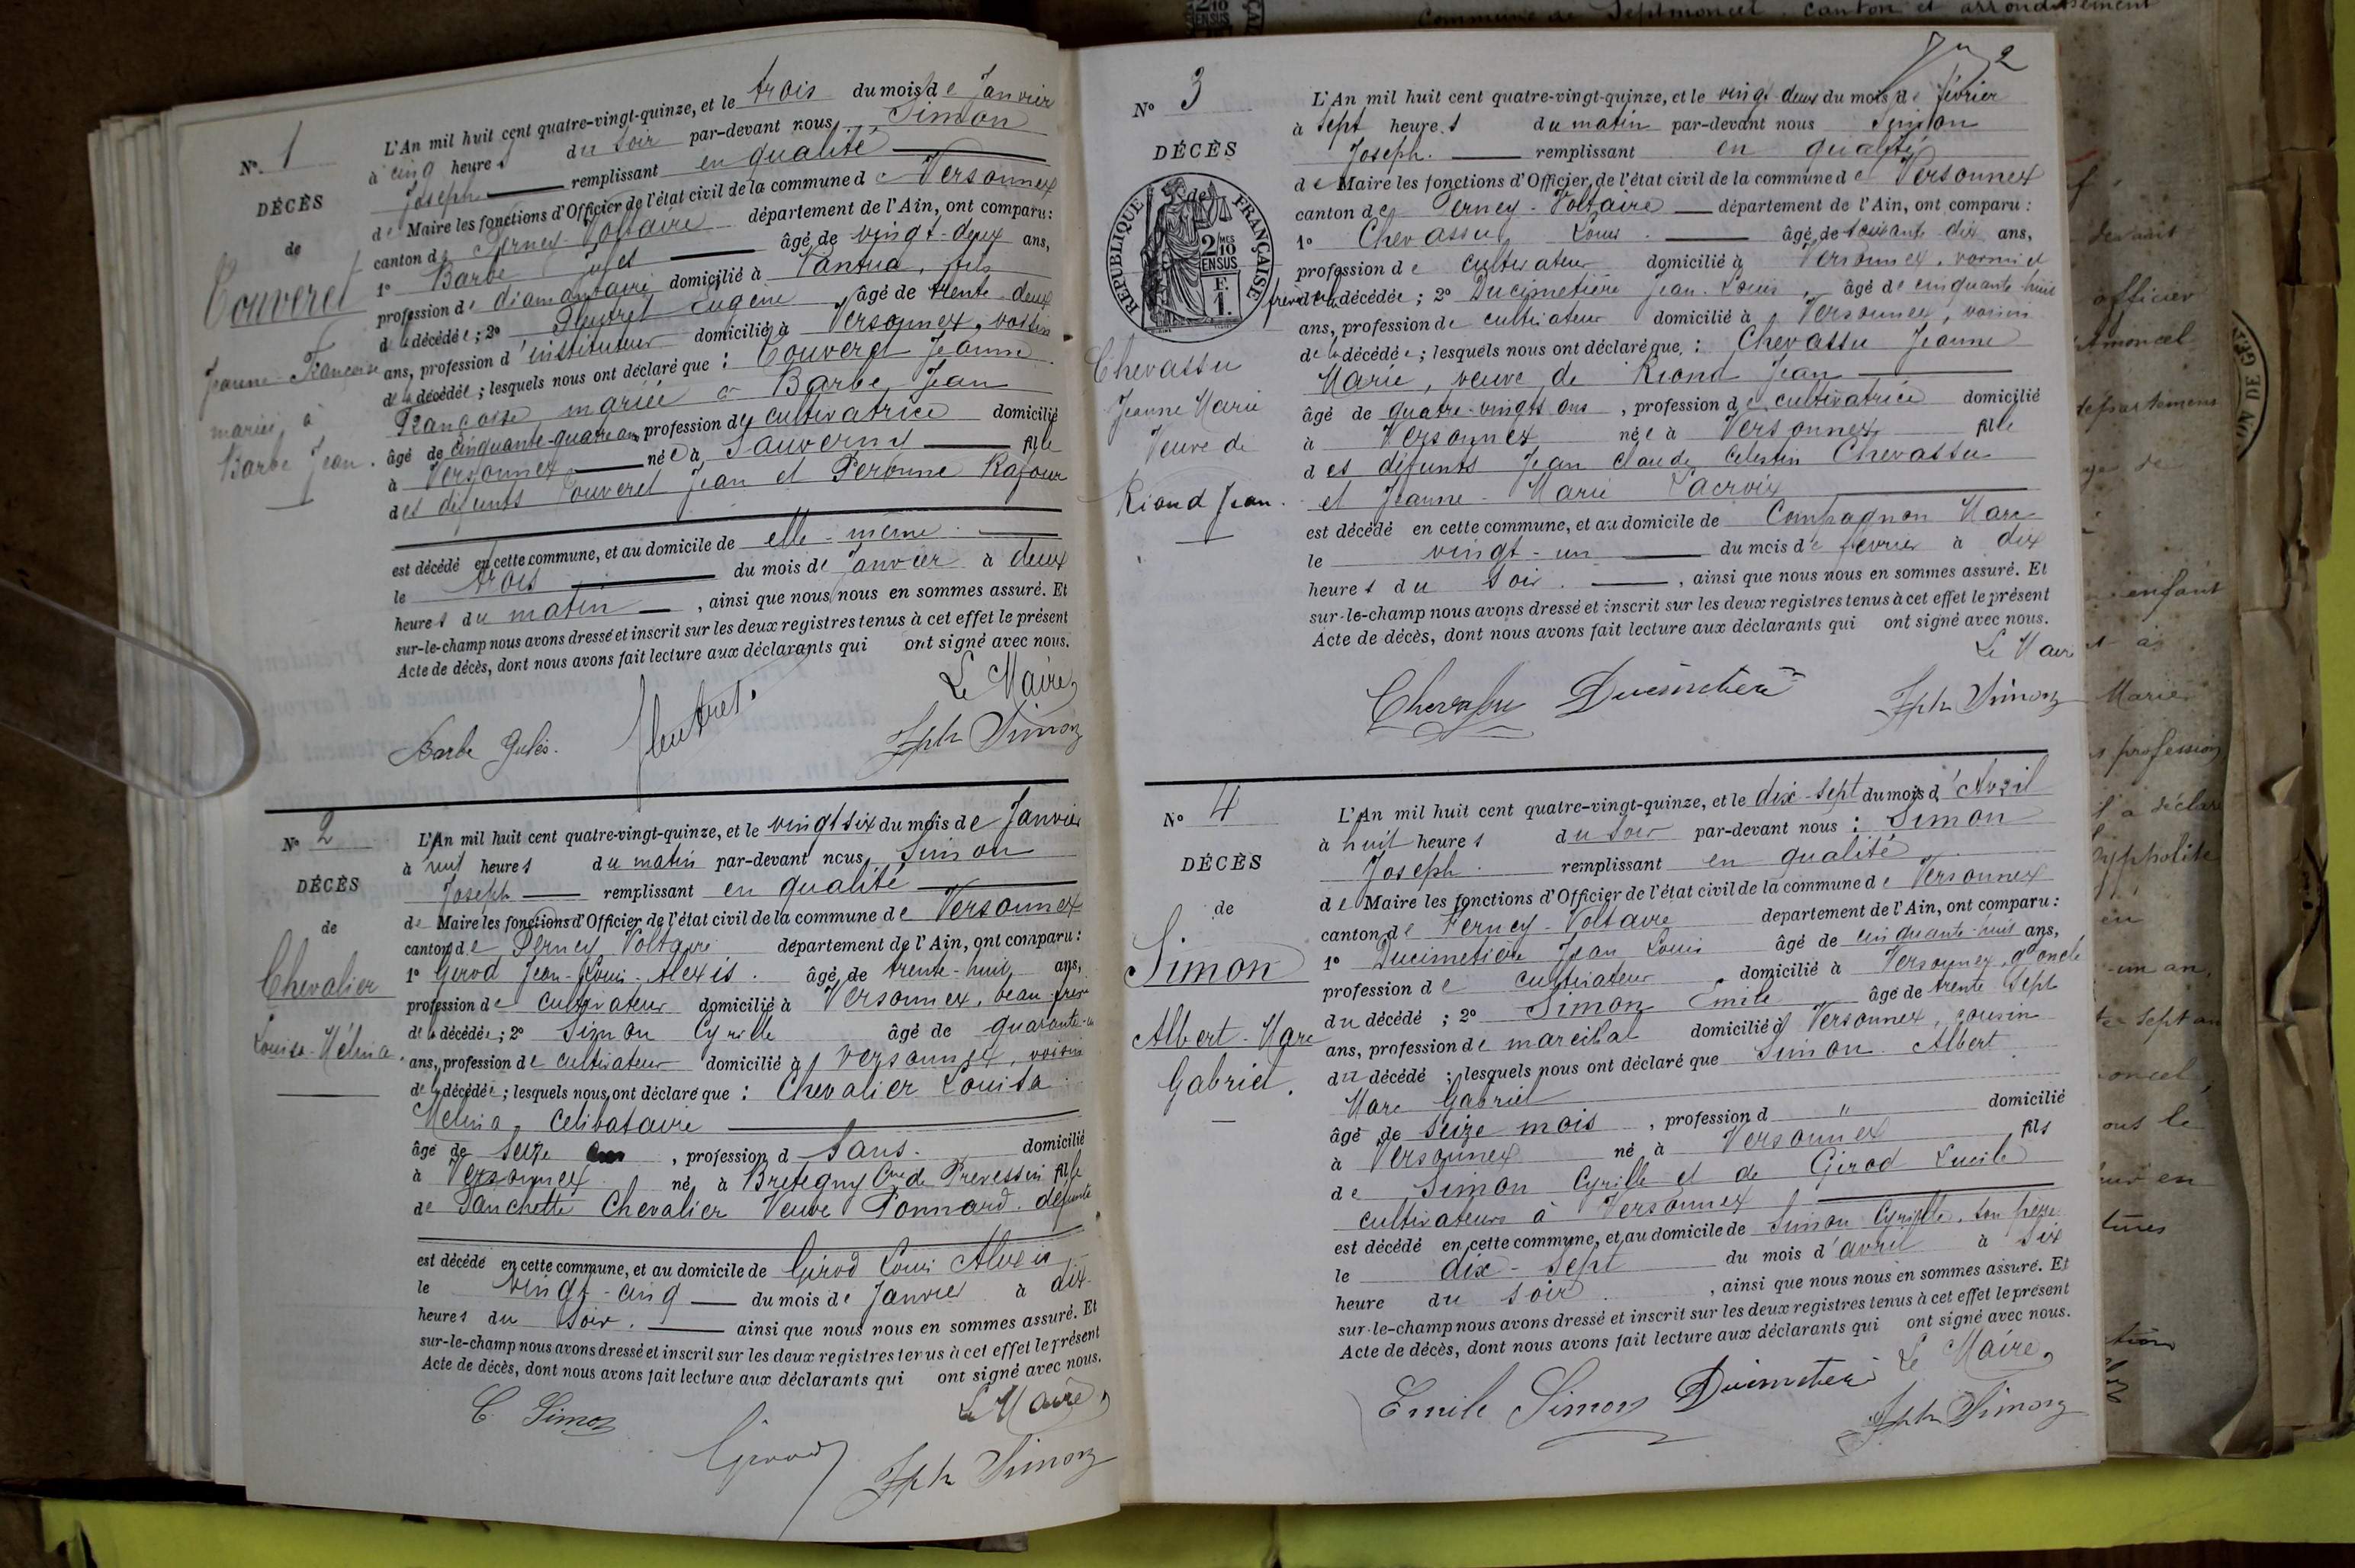 Nº 1
DÉCÈS
de
Couveret
Jeanne Françoise
mariée à
Barbe Jean.
L'An mil huit cent quatre-vingt-quinze, et le trois du mois de Janvier
à cinq heures du soir par-devant nous, Simon
Joseph remplissant en qualité
de Maire les fonctions d'Officier de l'état civil de la commune de Versonnex
canton de Ferney-Voltaire département de l'Ain, ont comparu :
1º Barbe Jules âgé de vingt-deux ans,
profession de diamantaire domicilié à Nantua, fils
de la décédée ; 2º Eugène âgé de trente-deux
ans, profession d'instituteur domicilié à Versonnex, voisin
de la décédée ; lesquels nous ont déclaré que : Couveret Jeanne
Françoise mariée à Barbe Jean
âgé de cinquante-quatre ans profession de cultivatrice domicilié
à Versonnex née à Sauverny fille
des défunts Couveret Jean et Peronne
est décédé en cette commune, et au domicile de elle-même.
le trois du mois de Janvier à deux
heures du matin, ainsi que nous nous en sommes assuré. Et
sur-le-champ nous avons dressé et inscrit sur les deux registres tenus à cet effet le présent
Acte de décès, dont nous avons fait lecture aux déclarants qui ont signé avec nous.
Le Maire,
Barbe Jules.
Jph Simon
Nº 2
DÉCÈS
de
Chevalier
Louisa-Mélina.
L'An mil huit cent quatre-vingt-quinze, et le vingt six du mois de Janvier
à huit heures du matin par-devant nous, Simon
Joseph remplissant en qualité
de Maire les fonctions d'Officier de l'état civil de la commune de Versonnex
canton de Ferney Voltaire département de l'Ain, ont comparu :
1º Girod Jean-Louis-Alexis. âgé de trente-huit ans,
profession de cultivateur domicilié à Versonnex, beau frère
de la décédée ; 2º Simon Cyrille âgé de quarante-
ans, profession de cultivateur domicilié à Versonnex, voisin
de la décédée ; lesquels nous ont déclaré que : Chevalier Louisa
Mélina, Célibataire
âgé de seize ans, profession d sans. domicilié
à Versonnex né à Bretegny Cne de Prevessin fille
de Fanchette Chevalier Veuve Ponnard. défunte
est décédé en cette commune, et au domicile de Girod Louis Alexis
le vingt-cinq du mois de Janvier à dix
heures du soir. ainsi que nous nous en sommes assuré. Et
sur-le-champ nous avons dressé et inscrit sur les deux registres tenus à cet effet le présent
Acte de décès, dont nous avons fait lecture aux déclarants qui ont signé avec nous.
Le Maire,
C. Simon
Girod
Jph Simon
2
Nº 3
DÉCÈS
de
RÉPUBLIQUE FRANÇAISE
2/10 MES EN SUS
F. 1.
Chevassu
Jeanne Marie
Veuve de
Riond Jean.
L'An mil huit cent quatre-vingt-quinze, et le vingt-deux du mois de février
à sept heures du matin par-devant nous Simon
Joseph. remplissant en qualité
de Maire les fonctions d'Officier de l'état civil de la commune de Versonnex
canton de Ferney-Voltaire département de l'Ain, ont comparu :
1º Chevassu, Louis. âgé de soixante dix ans,
profession de cultivateur domicilié à Versonnex,
frère de la décédée ; 2º Ducimetière Jean-Louis, âgé de cinquante-huit
ans, profession de cultivateur domicilié à Versonnex, voisin
de la décédée ; lesquels nous ont déclaré que, : Chevassu Jeanne
Marie, veuve de Riond Jean
âgé de quatre-vingts ans, profession de cultivatrice domicilié
à Versonnex née à Versonnex fille
des défunts Jean Claude Celestin Chevassu
et Jeanne-Marie Lacroix
est décédé en cette commune, et au domicile de Compagnon Marc
le vingt-un du mois de février à dix
heures du soir., ainsi que nous nous en sommes assuré. Et
sur-le-champ nous avons dressé et inscrit sur les deux registres tenus à cet effet le présent
Acte de décès, dont nous avons fait lecture aux déclarants qui ont signé avec nous.
Le Maire
Chevassu Ducimetière
Jph Simon
Nº 4
DÉCÈS
de
Simon
Albert-Marc
Gabriel.
L'An mil huit cent quatre-vingt-quinze, et le dix-sept du mois d'Avril
à huit heures du soir par-devant nous : Simon
Joseph. remplissant en qualité
de Maire les fonctions d'Officier de l'état civil de la commune de Versonnex
canton de Ferney-Voltaire département de l'Ain, ont comparu :
1º Ducimetière Jean Louis âgé de cinquante-huit ans,
profession de cultivateur, domicilié à Versonnex, gd oncle
du décédé ; 2º Simon Emile âgé de trente sept
ans, profession de maréchal domicilié à Versonnex, cousin
du décédé ; lesquels nous ont déclaré que Simon Albert
Marc Gabriel
âgé de seize mois, profession d " domicilié
à Versonnex né à Versonnex fils
de Simon Cyrille et de Girod Lucile
cultivateurs à Versonnex
est décédé en cette commune, et au domicile de Simon Cyrille, son père
le dix-sept du mois d'avril à six
heure du soir, ainsi que nous nous en sommes assuré. Et
sur-le-champ nous avons dressé et inscrit sur les deux registres tenus à cet effet le présent
Acte de décès, dont nous avons fait lecture aux déclarants qui ont signé avec nous.
Le Maire,
Emile Simon Ducimetière
Jph Simon
Commune de Septmoncel. canton et arrondissement
officier
enfant
Marie
profession